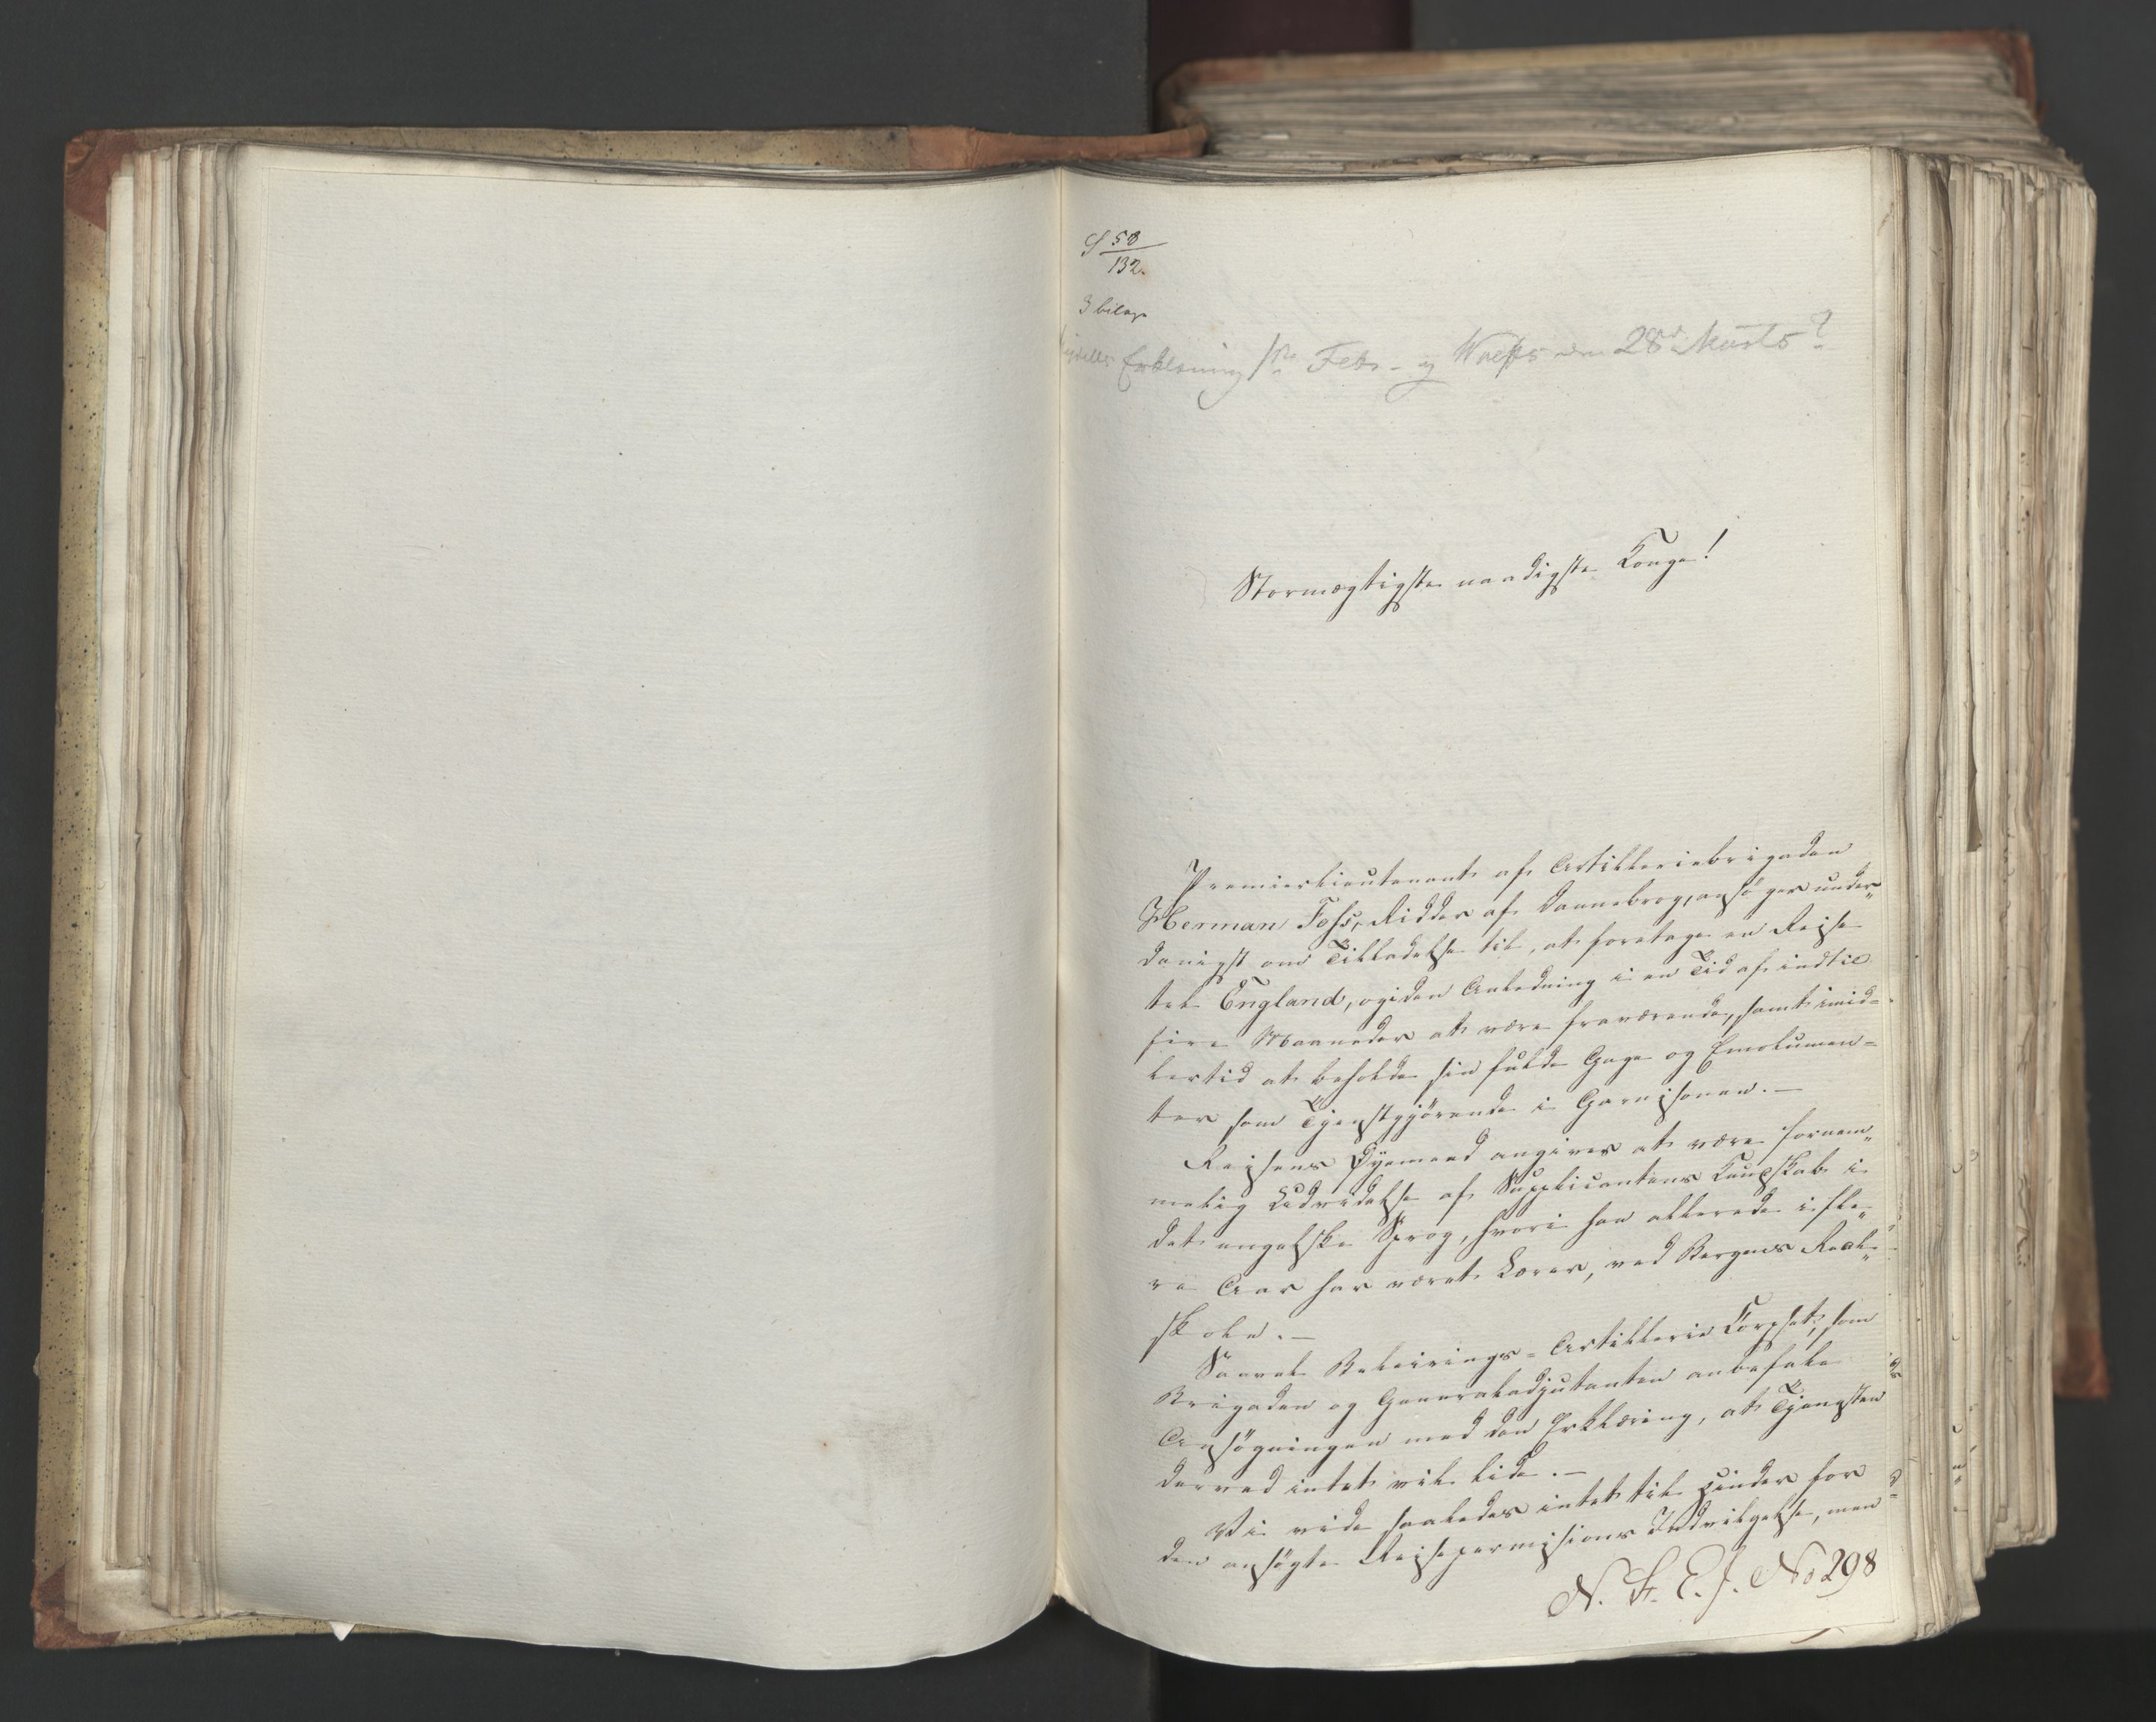 S 58/132.
3 bilage
Erklæring 1ste Febr. og den 28de Marts?
Stormægtigste naadigste Konge!
Premierlieutenant af Artilleriebrigaden
Herman Foss, Ridder af Dannebrog, ansøger under„
danigst om Tilladelse til, at foretage en Reise
til England, og i den Anledning i en Tid af indtil
fire Maaneder at være fraværende, samt imid=
lertid at beholde sin fulde Gage og Emolumen=
ter som Tjenstgjørende i Garnisonen.—
Reisens Øyemeed angives at være fornem„
melig Udvidelse af Supplicantens Kunskab i
det engelske Sprog, hvori han allerede i fle„
re Aar har været Lærer, ved Bergens Real„
skole.—
Saavel Beleirings=Artillerie Corpset, som
Brigaden og Generaladjutanten anbefale
Ansøgningen med den Erklæring, at Tjenesten
derved intet vil lide.—
Vi vide saaledes intet til Hinder for
den ansøgte Reisepermisions Indvilgelse, men
N. S. E. J. No 298